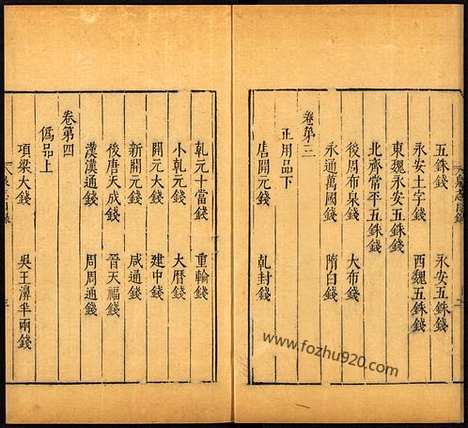 五銖錢 永安五銖錢
永安土字錢 西魏五銖錢
東魏永安五銖錢
北齊常平五銖錢
後周布泉錢 大布錢
永通萬國錢 隋白錢
卷第三
正用品下
唐開元錢 乹封錢
乹元十當錢 重輪錢
小乹元錢 大曆錢
開元大錢 建中錢
新開元錢 咸通錢
後唐天成錢 晉天福錢
漢漢通錢 周周通錢
卷第四
僞品上
項梁大錢 吳王濞半兩錢
www.fozhu920.com